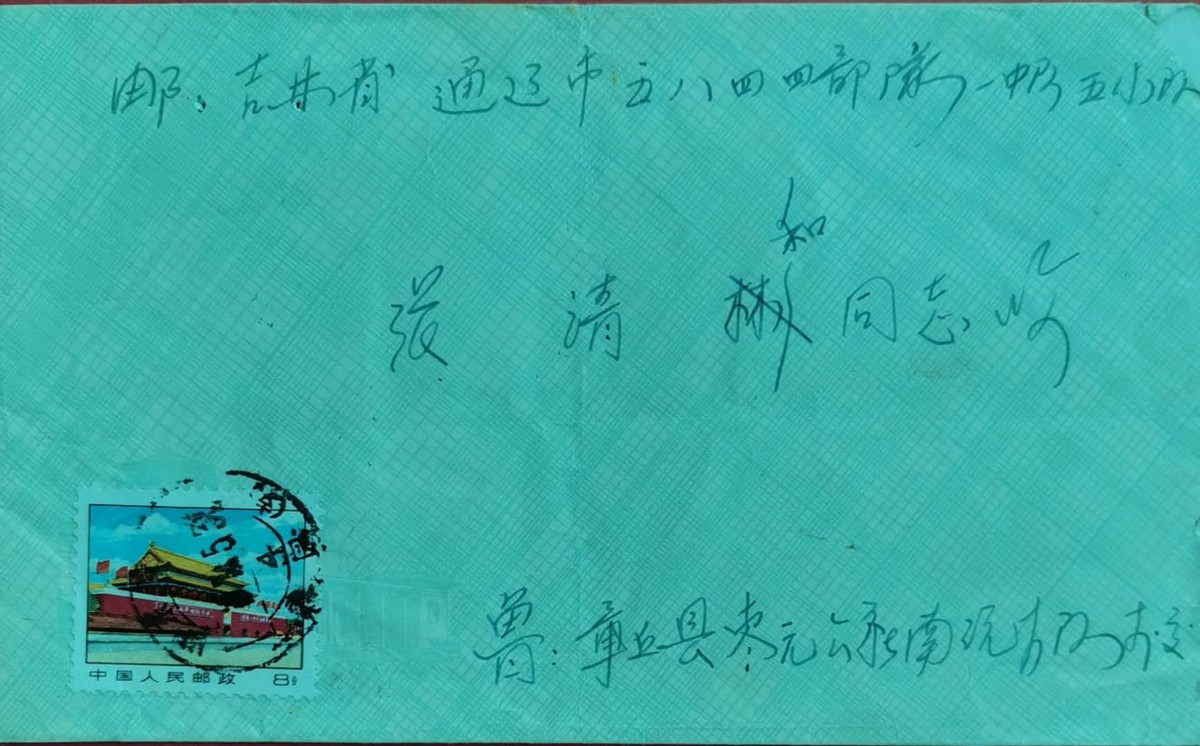 邮：吉林省 通辽市五八四四部隊一中队五小队
和
张 清 彬 同志收
中国人民邮政 8分
鲁：章丘县枣元公社南沉